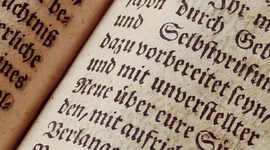 uchtnis
u be-
erliche
ines
Ihr n
schon durch Geb
und Selbstprüfun
dazu vorbereitet seyn
und mit unverstellter
Reue über eure Sü
den, mit aufrich
Verlange